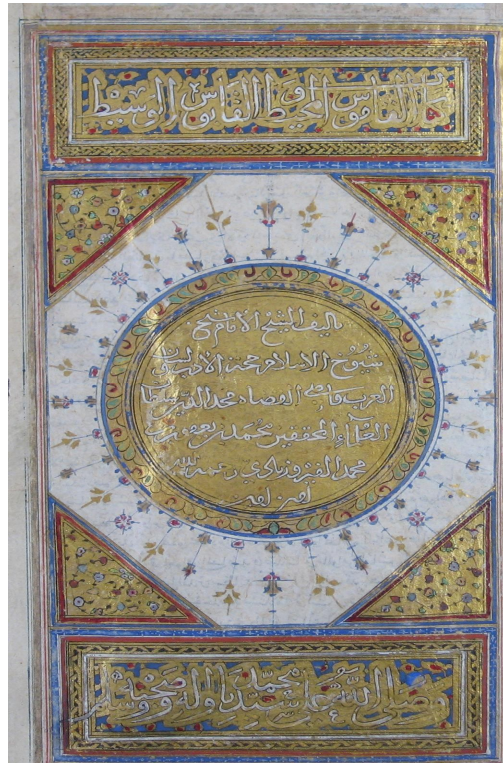 كتاب القاموس المحيط و القابوس الوسيط
تاليف الشيخ الامام شيخ
شيوخ الاسلام حجة الادب لسان
العرب قاضي القضاه مجد الدين سلطان
العلماء المحققين محمد بن يعقوب بن
محمد الفيروزبادي رحمه الله
امين امين
وصلى الله على سيدنا محمد واله وصحبه وسلم